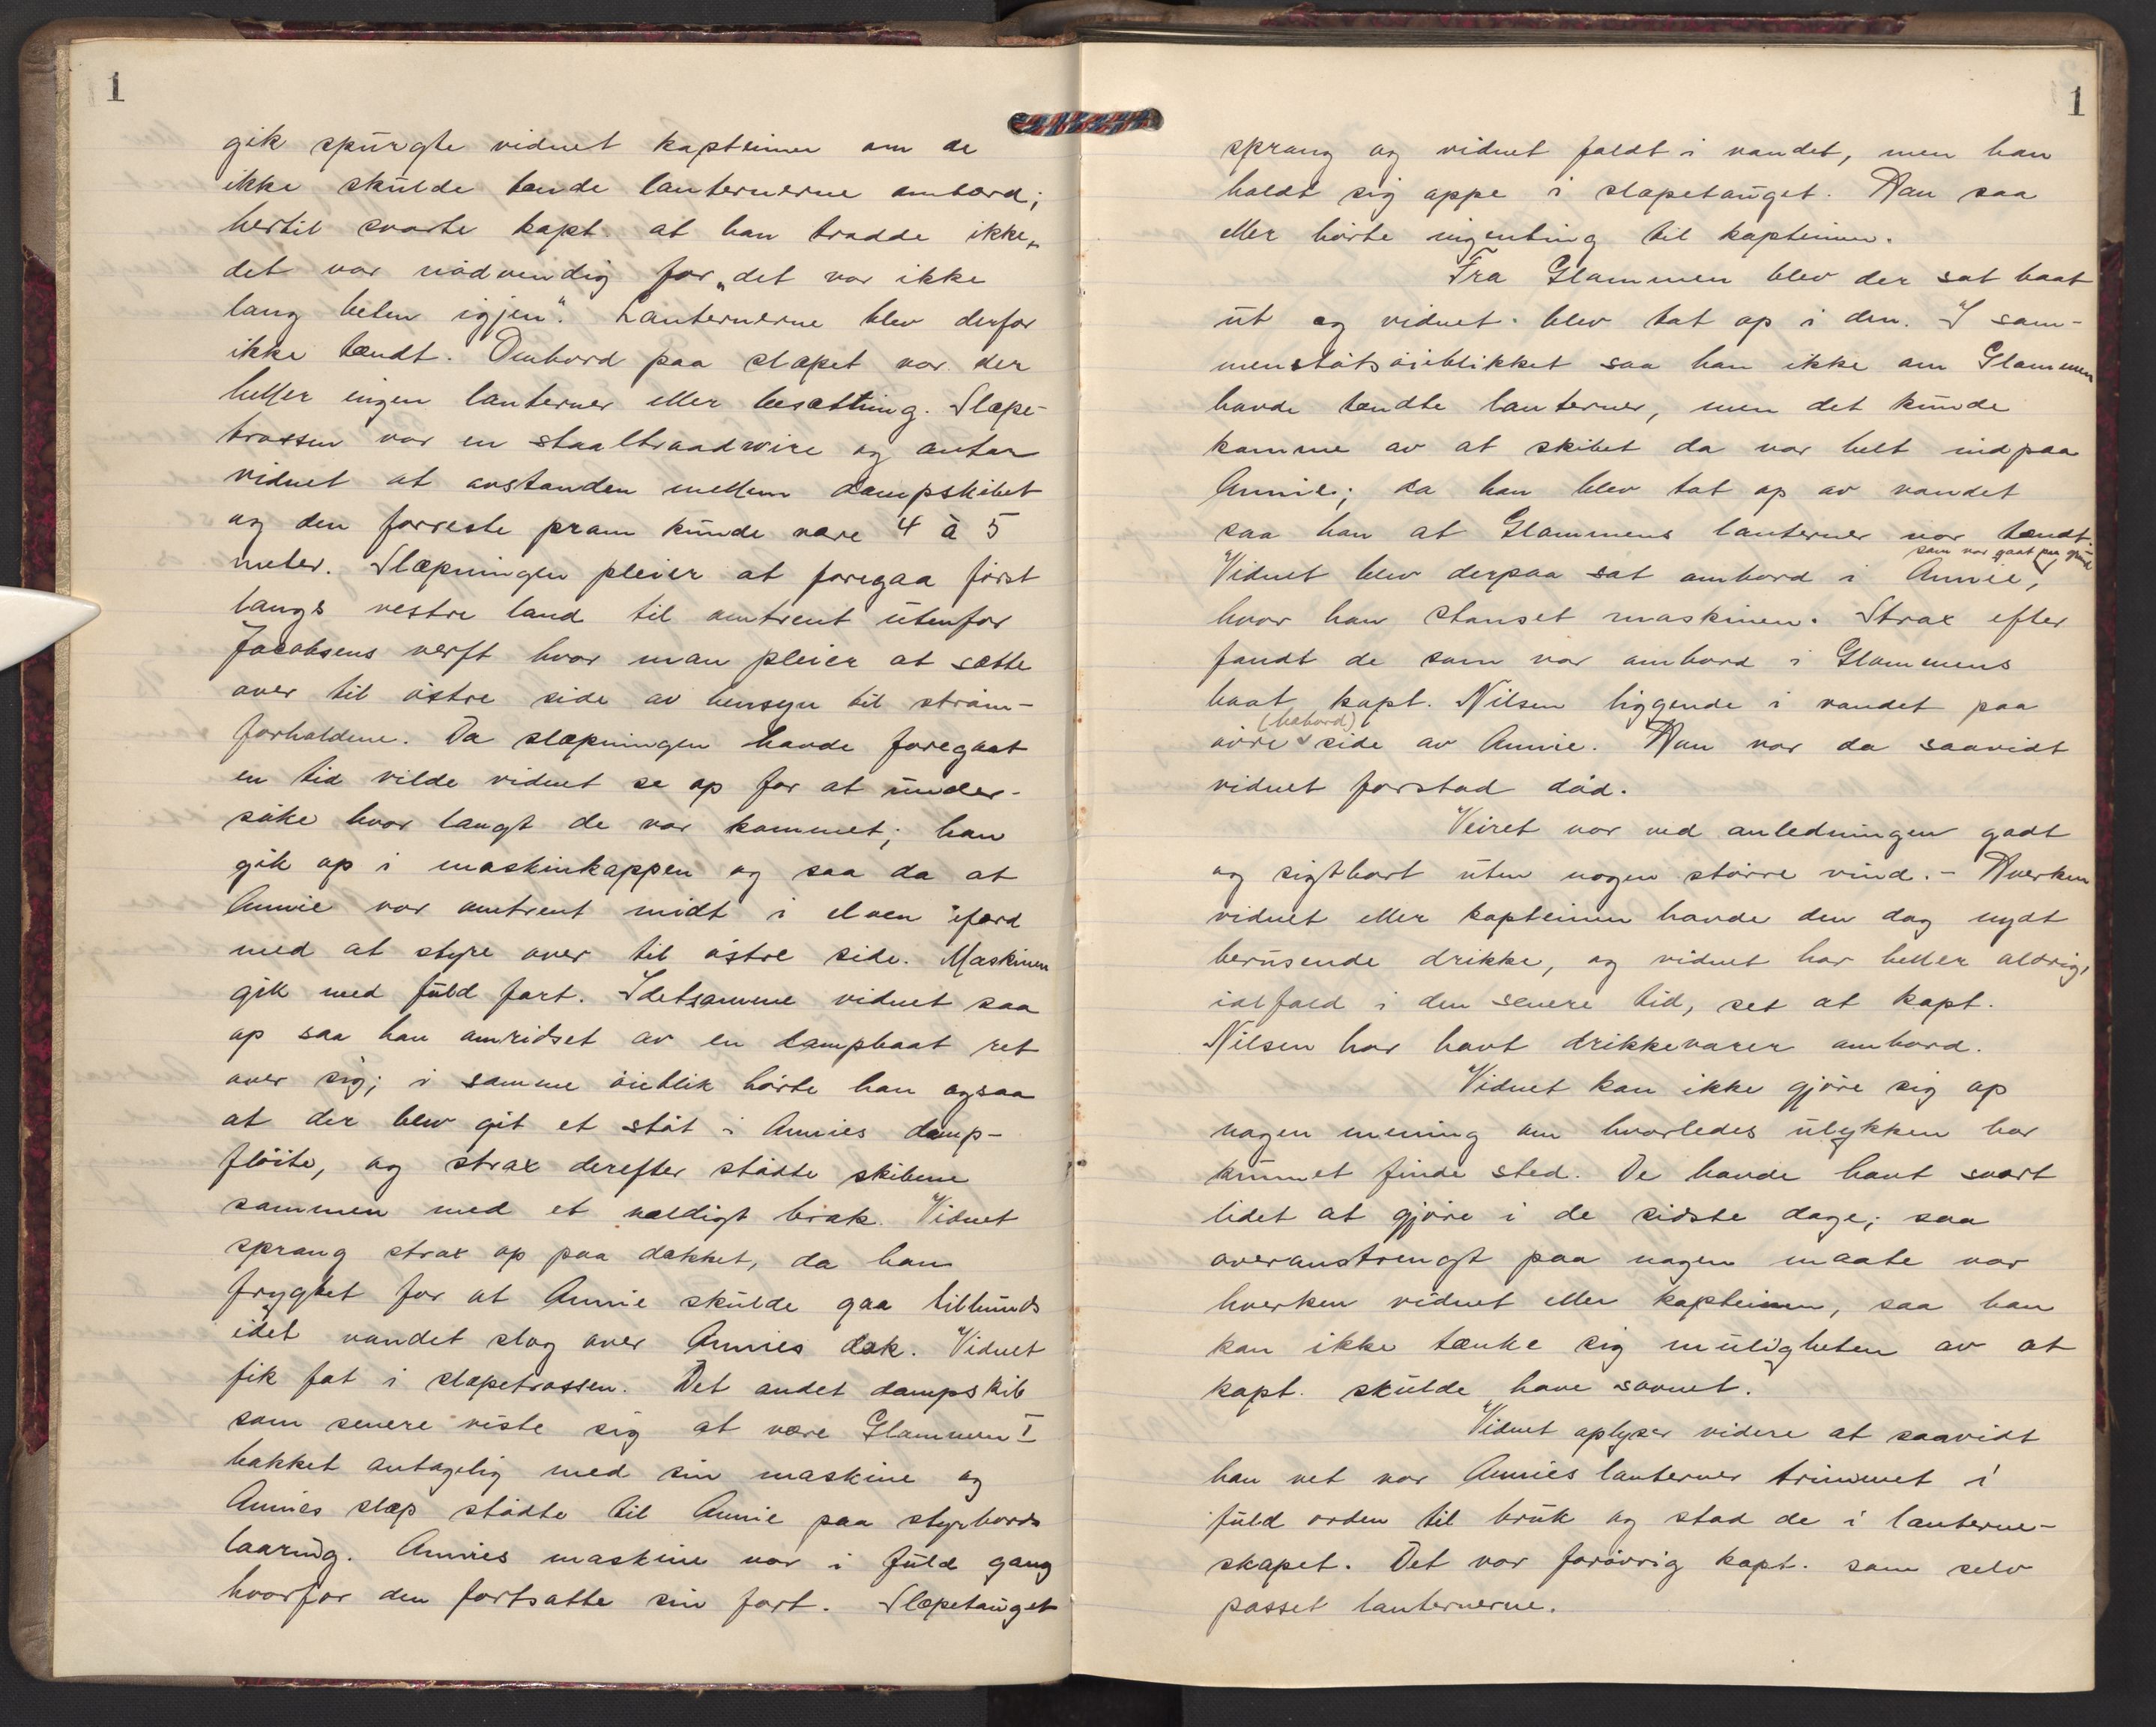 1
gik spurgte vidnet kapteinen om de
ikke skulde tænde lanternerne ombord;
hertil svarte kapt. at han trodde ikke
det var nödvendig for „det var ikke
lang biten igjen". Lanternerne blev derfor
ikke tændt. Ombord paa slæpet var der
heller ingen lanterner eller besætting. Slæpe-
trossen var en staaltraadwire og antar
vidnet at avstanden mellem dampskibet
og den forreste pram kunde være 4 à 5
meter. Slæpningen pleier at foregaa först
langs vestre land til omtrent utenfor
Jacobsens verft hvor man pleier at sætte
over til östre side av hensyn til ström-
forholdene. Da slæpningen havde foregaat
en tid vilde vidnet se op for at under-
söke hvor langt de var kommet; han
gik op i maskinkappen og saa da at
Annie var omtrent midt i elven ifærd
med at styre over til östre side. Maskinen
gik med fuld fart. Idetsamme vidnet saa
op saa han omridset av en dampbaat ret
over sig; i samme öieblik hörte han ogsaa
at der blev git et stöt i Annies damp-
flöite, og strax derefter stödte skibene
sammen med et vældigt brak. Vidnet
sprang strax op paa dækket, da han
frygtet for at Annie skulde gaa tilbunds
idet vandet slog over Annies dæk. Vidnet
fik fat i slæpetrossen. Det andet dampskib
som senere viste sig at være Glommen I
bakket antagelig med sin maskine og
Annies slæp stödte til Annie paa styrbords
laaring. Annies maskine var i fuld gang
hvorfor den fortsatte sin fart. Slæpetauget
1
sprang og vidnet faldt i vandet, men han
holdt sig oppe i slæpetauget. Han saa
eller hörte ingenting til kapteinen.
Fra Glommen blev der sat baat
ut og vidnet blev tat op i den. I sam-
menstötsöieblikket saa han ikke om Glommen
havde tændte lanterner, men det kunde
komme av at skibet da var helt indpaa
Annie; da han blev tat op av vandet
saa han at Glommens lanterner var tændt.
som var gaat paa grund
Vidnet blev derpaa sat ombord i Annie,
hvor han stanset maskinen. Strax efter
fandt de som var ombord i Glommens
baat kapt. Nilsen liggende i vandet paa
(babord)
övre side av Annie. Han var da saavidt
vidnet forstod död.
Veiret var ved anledningen godt
og sigtbart uten nogen större vind. - Hverken
vidnet eller kapteinen havde den dag nydt
berusende drikke, og vidnet har heller aldrig,
ialfald i den senere tid, set at kapt.
Nilsen har havt drikkevarer ombord.
Vidnet kan ikke gjöre sig op
nogen mening om hvorledes ulykken har
kunnet finde sted. De havde havt svært
lidet at gjöre i de sidste dage; saa
overanstrengt paa nogen maate var
hverken vidnet eller kapteinen, saa han
kan ikke tænke sig muligheten av at
kapt. skulde have sovnet.
Vidnet oplyser videre at saavidt
han vet var Annies lanterner trimmet i
fuld orden til bruk og stod de i lanterne-
skapet. Det var forövrig kapt. som selv
passet lanternerne.